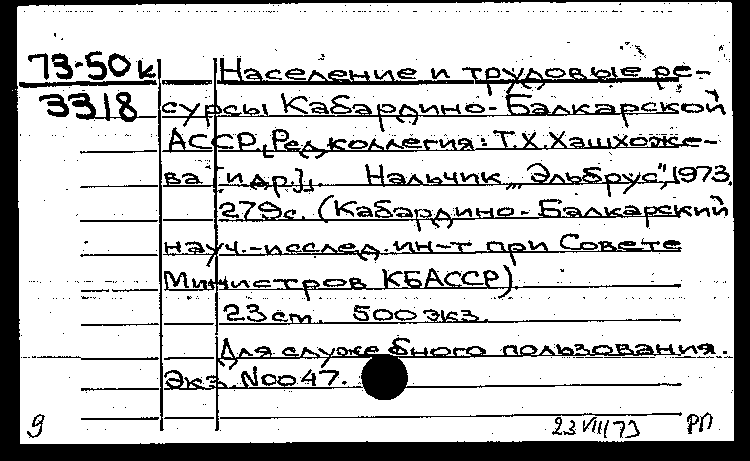 73-50к Население и трудовые ре-
3318 сурсы Кабардино-Балкарской
АССР. [Ред.коллегия: Т.Х.Хашхоже-
ва [и др.]]. Нальчик, „Эльбрус“, 1973.
279с. (Кабардино-Балкарский
науч.-исслед.ин-т при Совете
Министров КБАССР)
23см. 500 экз.
Для служебного пользования.
Экз. №0047.
9 23 VIII 73 РП